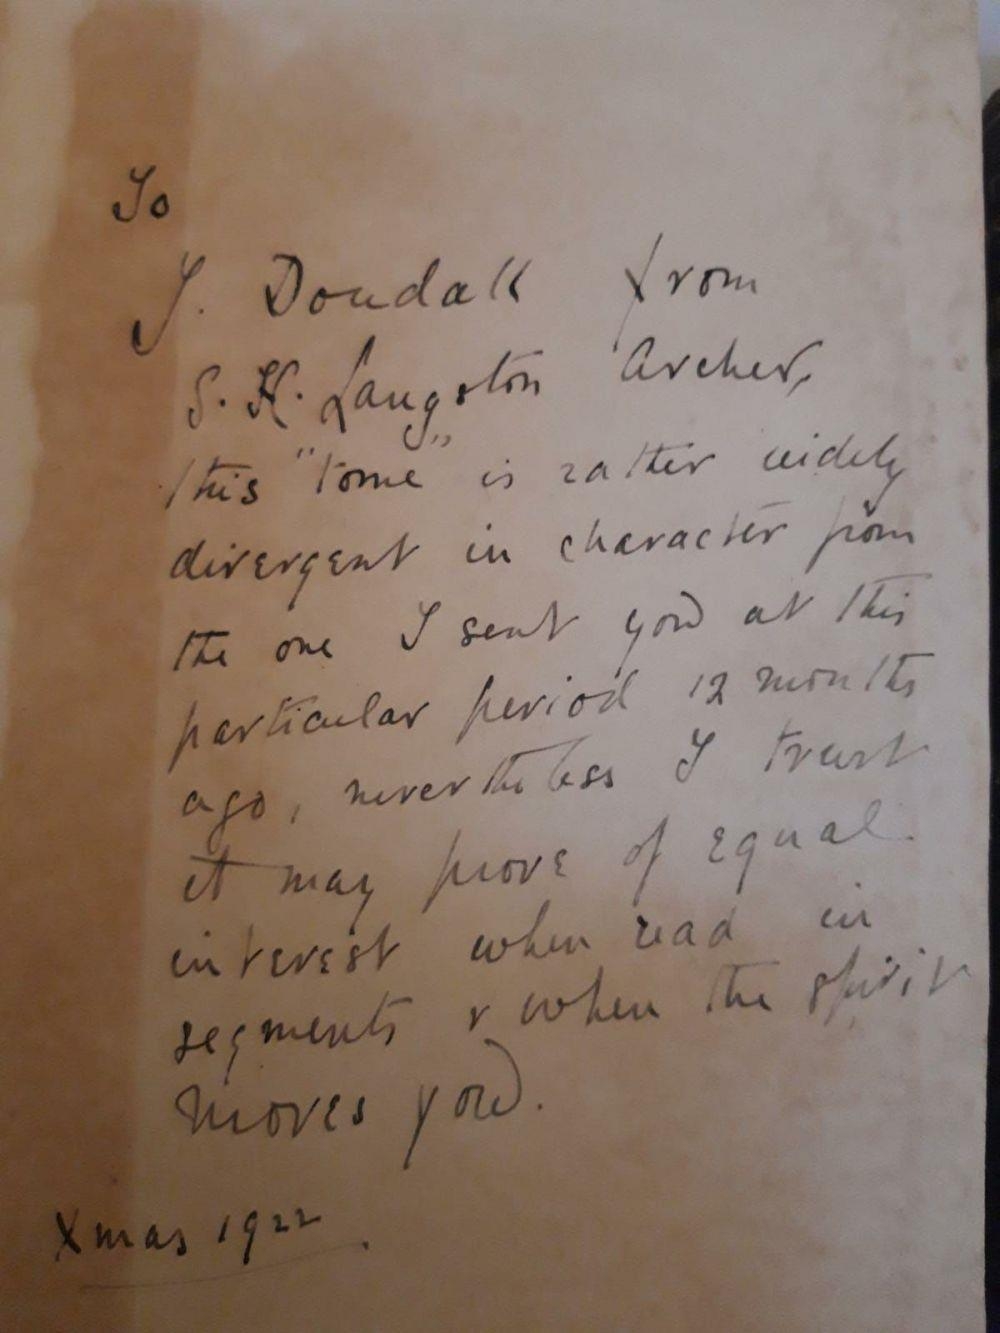 To
J. Dondall from
S. H. Langston Archer,
this "tome" is rather widely
divergent in character from
the one I sent you at this
particular period 12 months
ago, nevertheless I trust
it may prove of equal
interest when read in
segments & when the spirit
moves you.
Xmas 1922